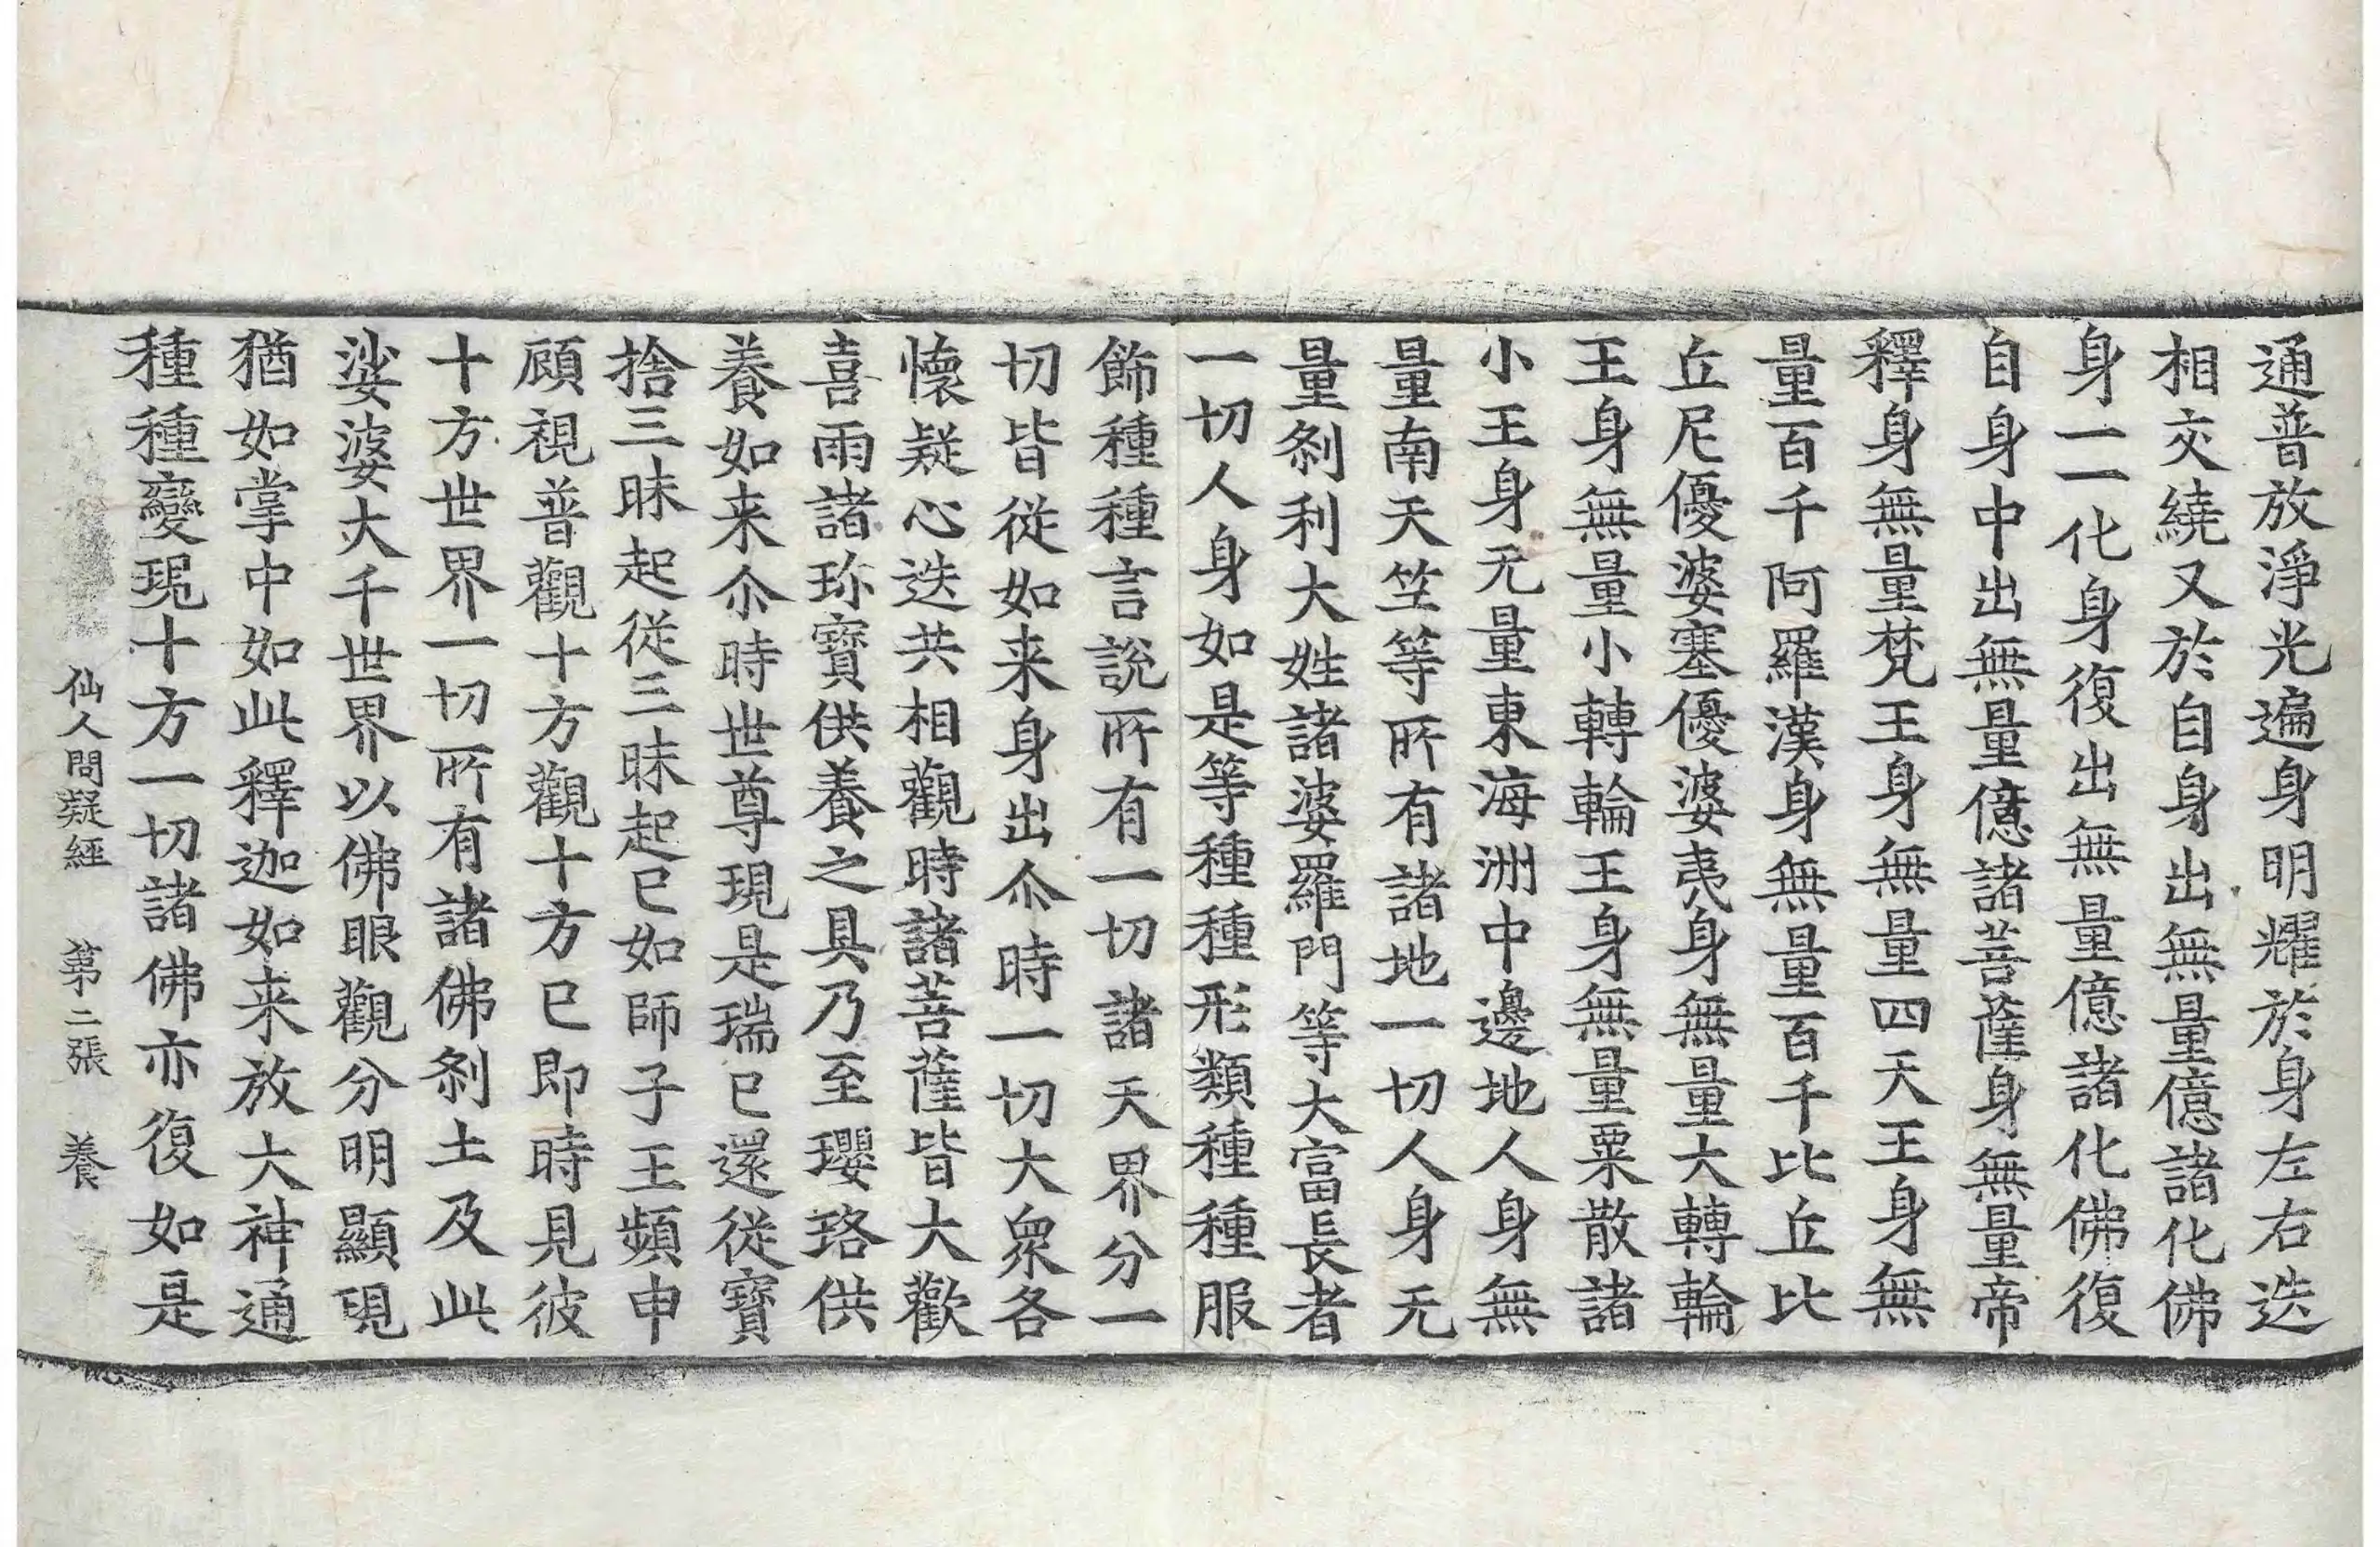 通普放淨光遍身明耀於身左右迭
相交繞又於自身出無量億諸化佛
身一一化身復出無量億諸化佛復
自身中出無量億諸菩薩身無量帝
釋身無量梵王身無量四天王身無
量百千阿羅漢身無量百千比丘比
丘尼優婆塞優婆夷身無量大轉輪
王身無量小轉輪王身無量粟散諸
小王身无量東海洲中邊地人身無
量南天竺等所有諸地一切人身无
量刹利大姓諸婆羅門等大富長者
一切人身如是等種種形類種種服
飾種種言說所有一切諸天界分一
切皆從如来身出尒時一切大衆各
懷疑心迭共相觀時諸菩薩皆大歡
喜雨諸珎寶供養之具乃至瓔珞供
養如来尒時世尊現是瑞已還從寶
捨三昧起從三昧起已如師子王頻申
顧視普觀十方觀十方已即時見彼
十方世界一切所有諸佛刹土及此
娑婆大千世界以佛眼觀分明顯現
猶如掌中如此釋迦如来放大神通
種種變現十方一切諸佛亦復如是
仙人問疑經 第二張 養